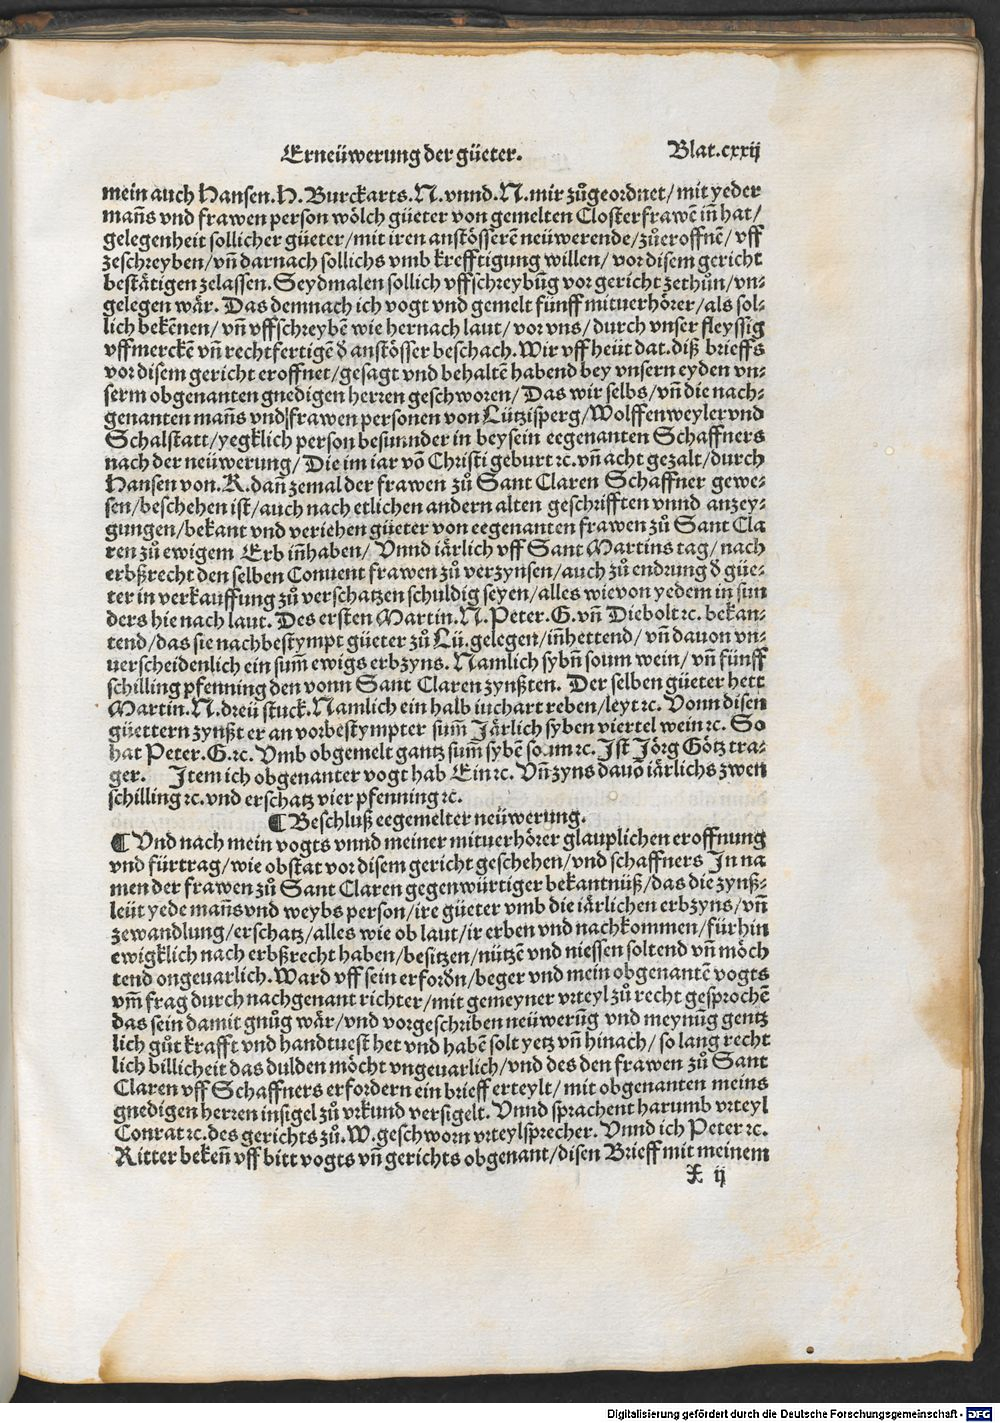 Erneüwerung der güeter. Blat.cxxij
mein auch Hansen.H.Burckarts.N.vnnd.N.mir zůgeordnet/mit yeder
mañs vnd frawen person wölch güeter von gemelten Closterfrawẽ iñ hat/
gelegenheit sollicher güeter/mit iren anstösserẽ neüwerende/zůeroffnẽ/vff
zeschreyben/vñ darnach sollichs vmb krefftigung willen/vor disem gericht
bestätigen zelassen.Seydmalen sollich vffschreybũg vor gericht zethůn/vn⸗
gelegen wär. Das demnach ich vogt vnd gemelt fünff mituerhörer/als sol⸗
lich bekẽnen/vñ vffschreybẽ wie hernach laut/vor vns/durch vnser fleyssig
vffmerckẽ vñ rechtfertigẽ ð anstösser beschach.Wir vff heüt dat.diß brieffs
vor disem gericht eroffnet/gesagt vnd behaltẽ habend bey vnsern eyden vn⸗
serm obgenanten gnedigen herren geschworen/Das wir selbs/vñ die nach⸗
genanten mañs vnd frawen personen von Lützisperg/Wolffenweyler vnd
Schalstatt/yegklich person besunnder in beysein eegenanten Schaffners
nach der neüwerung/Die im iar võ Christi geburt ꝛc. vñ acht gezalt/durch
Hansen von.R.dañ zemal der frawen zů Sant Claren Schaffner gewe⸗
sen/beschehen ist/auch nach etlichen andern alten geschrifften vnnd anzey⸗
gungen/bekant vnd veriehen güeter von eegenanten frawen zů Sant Cla
ren zů ewigem Erb iñhaben/Vnnd iärlich vff Sant Martins tag/nach
erbßrecht den selben Conuent frawen zů verzynsen/auch zů endrung ð güe⸗
ter in verkauffung zů verschatzen schuldig seyen/alles wie von yedem in sun
ders hie nach laut. Des ersten Martin.N.Peter.G.vñ Diebolt ꝛc. bekan⸗
tend/das sie nachbestympt güeter zů Lü.gelegen/iñhettend/vñ dauon vn⸗
uerscheidenlich ein sum̃ ewigs erbzyns. Namlich sybñ soum wein/vñ fünff
schilling pfenning den vonn Sant Claren zynßten. Der selben güeter hett
Martin.N.dreü stuck.Namlich ein halb iuchart reben/leyt ꝛc. Vonn disen
güettern zynßt er an vorbestympter sum̃ Järlich syben viertel wein ꝛc. So
hat Peter.G.ꝛc. Vmb obgemelt gantz sum̃ sybẽ soum ꝛc. Ist Jörg Götz tra⸗
ger. Item ich obgenanter vogt hab Ein ꝛc. Vñ zyns dauõ iärlichs zwen
schilling ꝛc.vnd erschatz vier pfenning ꝛc.
¶ Beschluß eegemelter neüwerung.
¶ Vnd nach mein vogts vnnd meiner mituerhörer glauplichen eroffnung
vnd fürtrag/wie obstat vor disem gericht geschehen/vnd schaffners In na
men der frawen zů Sant Claren gegenwürtiger bekantnüß/das die zynß⸗
leüt yede mañs vnd weybs person/ire güeter vmb die iärlichen erbzyns/vñ
zewandlung/erschatz/alles wie ob laut/ir erben vnd nachkommen/für hin
ewigklich nach erbßrecht haben/besitzen/nützẽ vnd niessen soltend vñ möch
tend ongeuarlich.Ward vff sein erfordn/beger vnd mein obgenantẽ vogts
vm̃ frag durch nachgenant richter/mit gemeyner vrteyl zů recht gesprochẽ
das sein damit gnůg wär/vnd vorgeschriben neüwerũg vnd meynũg gentz
lich gůt krafft vnd handtuest het vnd habẽ solt yetz vñ hinach/so lang recht
lich billicheit das dulden möcht vngeuarlich/vnd des den frawen zů Sant
Claren vff Schaffners erfordern ein brieff erteylt/mit obgenanten meins
gnedigen herren insigel zů vrkund versigelt. Vnnd sprachent harumb vrteyl
Conrat ꝛc.des gerichts zů.W.geschworn vrteylsprecher. Vnnd ich Peter ꝛc.
Ritter bekeñ vff bitt vogts vñ gerichts obgenant/disen Brieff mit meinem
X ij
Digitalisierung gefördert durch die Deutsche Forschungsgemeinschaft - DFG